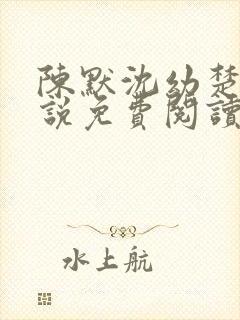 陳默沈幼楚
說免費閱讀
水上航